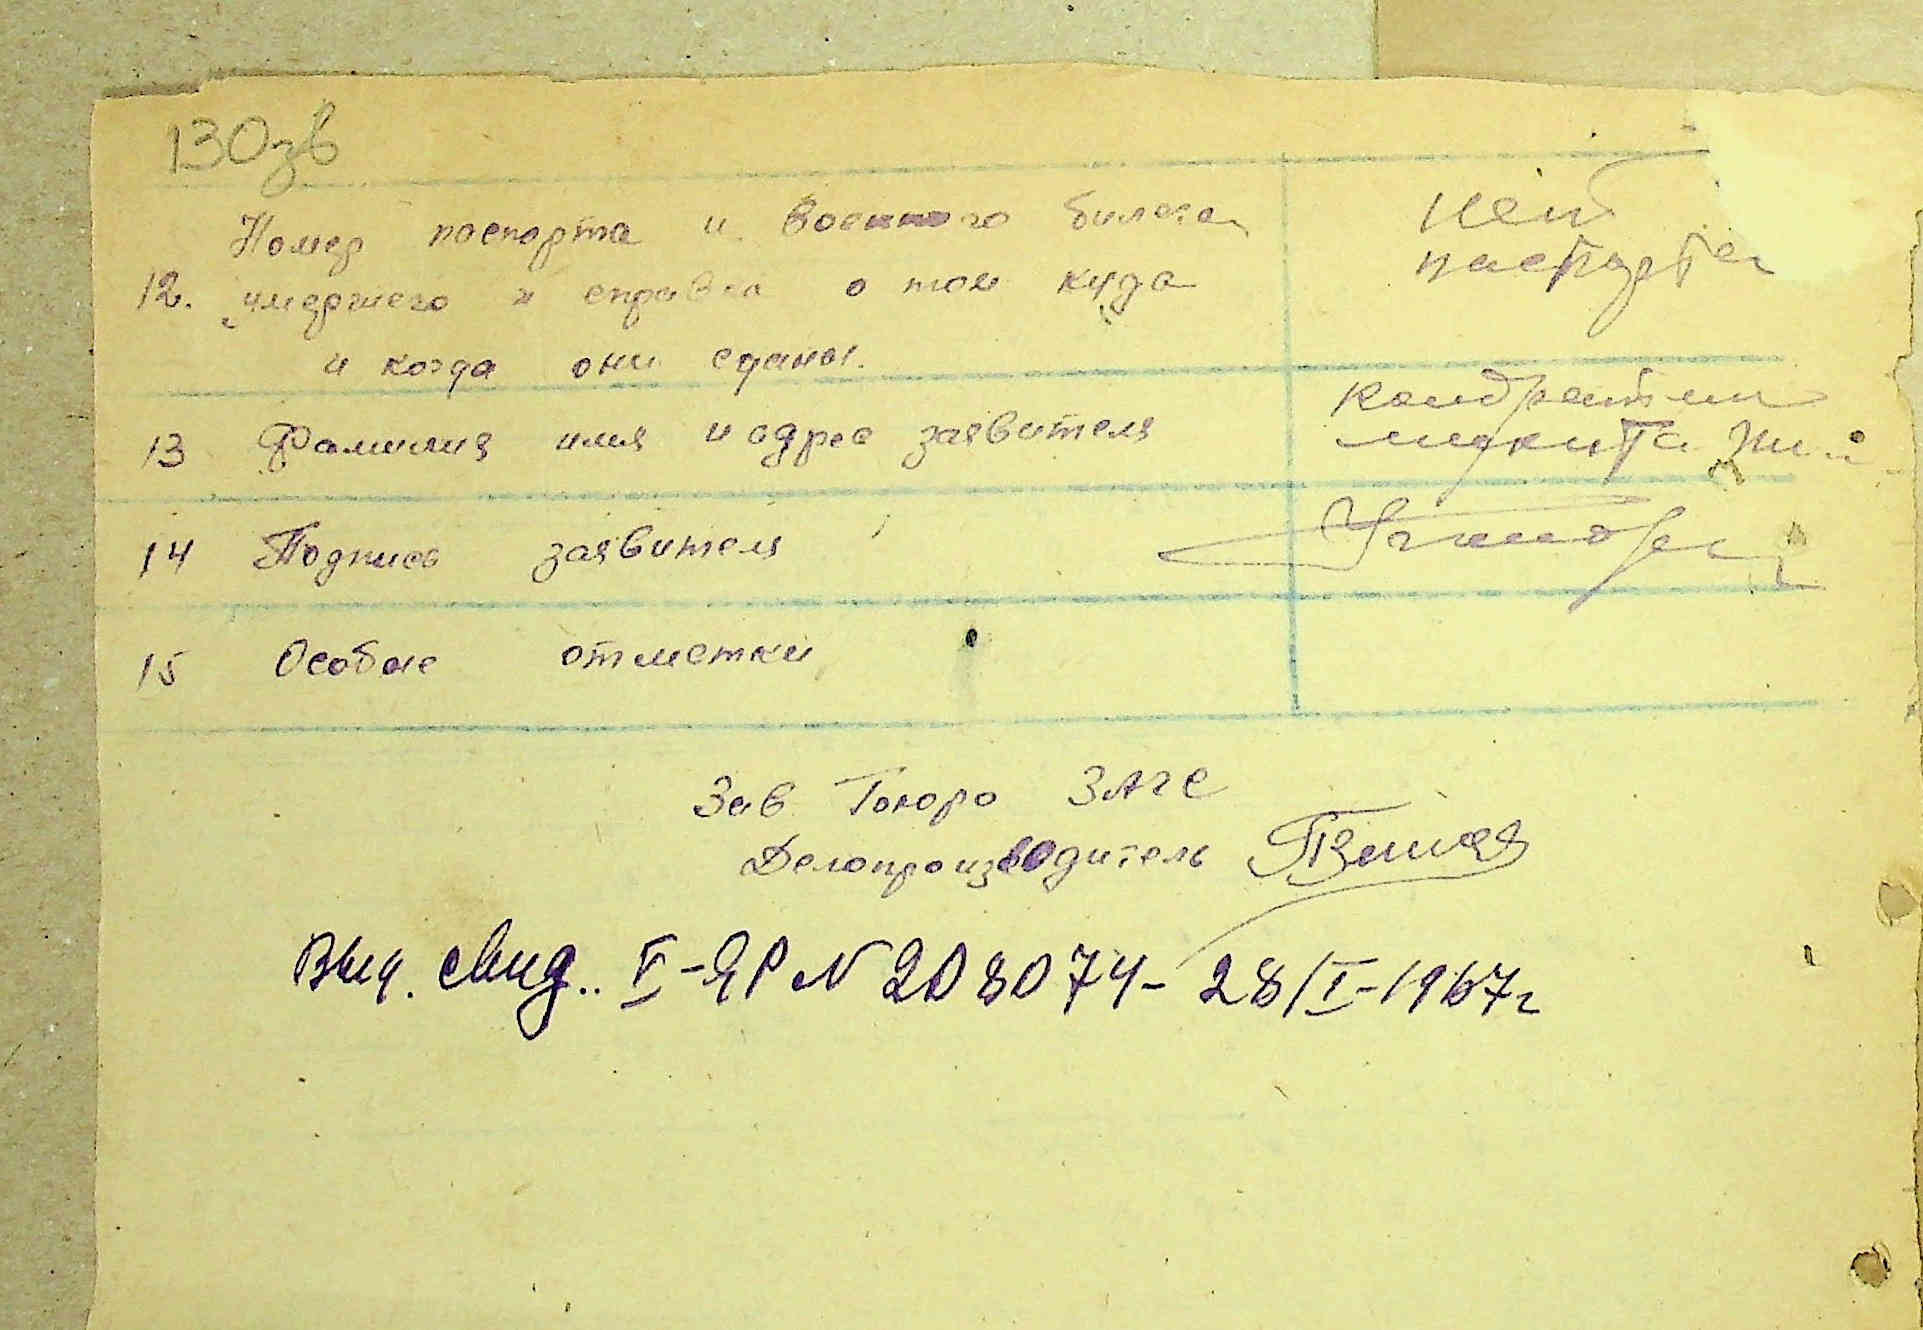 130зв
Номер паспорта и военного билета нет
12. умершего и справка о том куда паспорта
и когда они сданы.
13 Фамилия имя и адрес заявителя
никита
14 Подпись заявителя
15 Особые отметки
Зав Бюро ЗАГС
Делопроизводитель
Выд. свид.. V-ЯР N 208074- 28/I-1967г